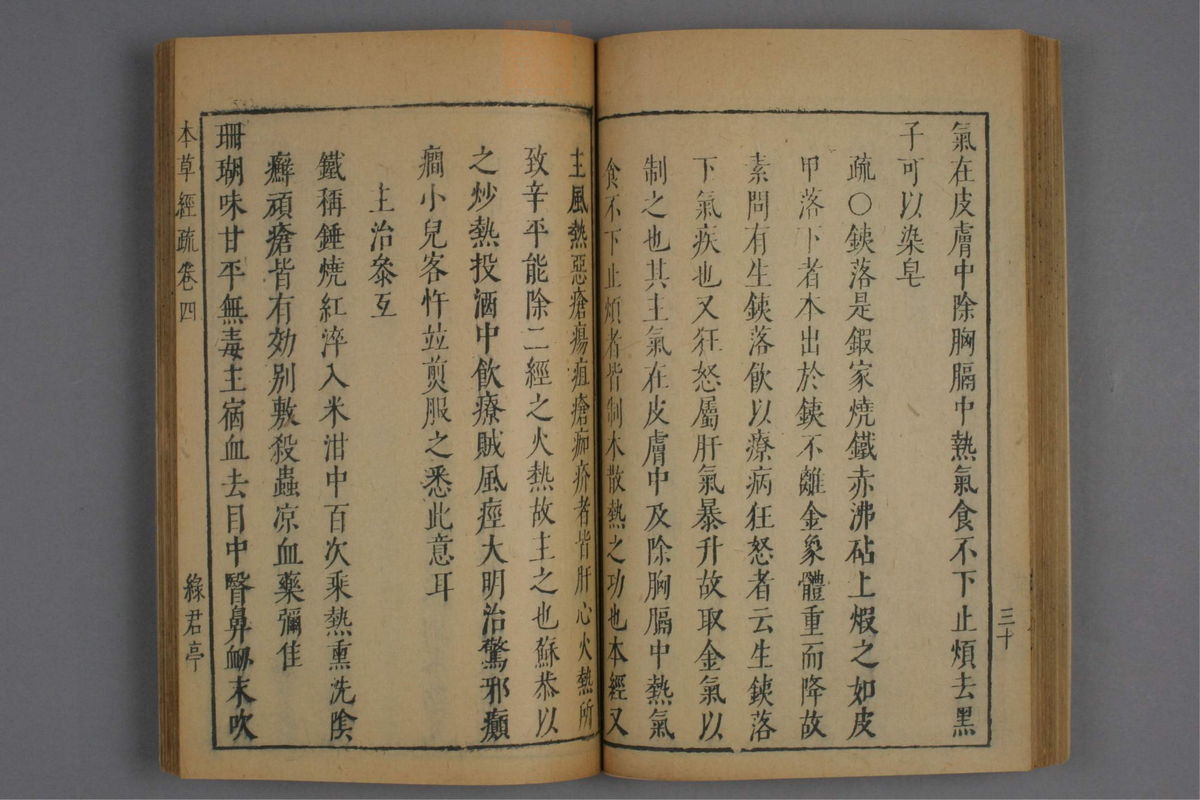 氣在皮膚中除胸膈中熱氣食不下止煩去黑
子可以染皂
疏○鐵落是鍜家燒鐵赤沸砧上煆之如皮
甲落下者本出於鐵不離金象體重而降故
素問有生鐵落飲以療病狂怒者云生鐵落
下氣疾也又狂怒屬肝氣暴升故取金氣以
制之也其主氣在皮膚中及除胸膈中熱氣
食不下止煩者皆制木散熱之功也本經又
三十
主風熱惡瘡瘍疽瘡痂疥者皆肝心火熱所
致辛平能除二經之火熱故主之也蘇恭以
之炒熱投酒中飲療賊風痙大明治驚邪癲
癎小兒客忤並煎服之悉此意耳
主治叅互
鐵稱錘燒紅淬入米泔中百次乘熱熏洗陰
癬頑瘡皆有効別敷殺蟲凉血藥彌佳
珊瑚味甘平無毒主宿血去目中瞖鼻衂末吹
本草經疏卷四
綠君亭